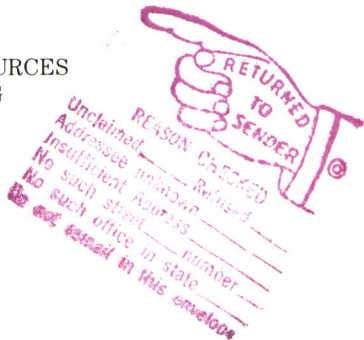 URCES
G
RETURNED
TO
SENDER
REASON CHECKED
Unclaimed____ Refused____
Addressee unknown____
Insufficient Address____
No such street____ number____
No such office in state____
Do not remail in this envelope